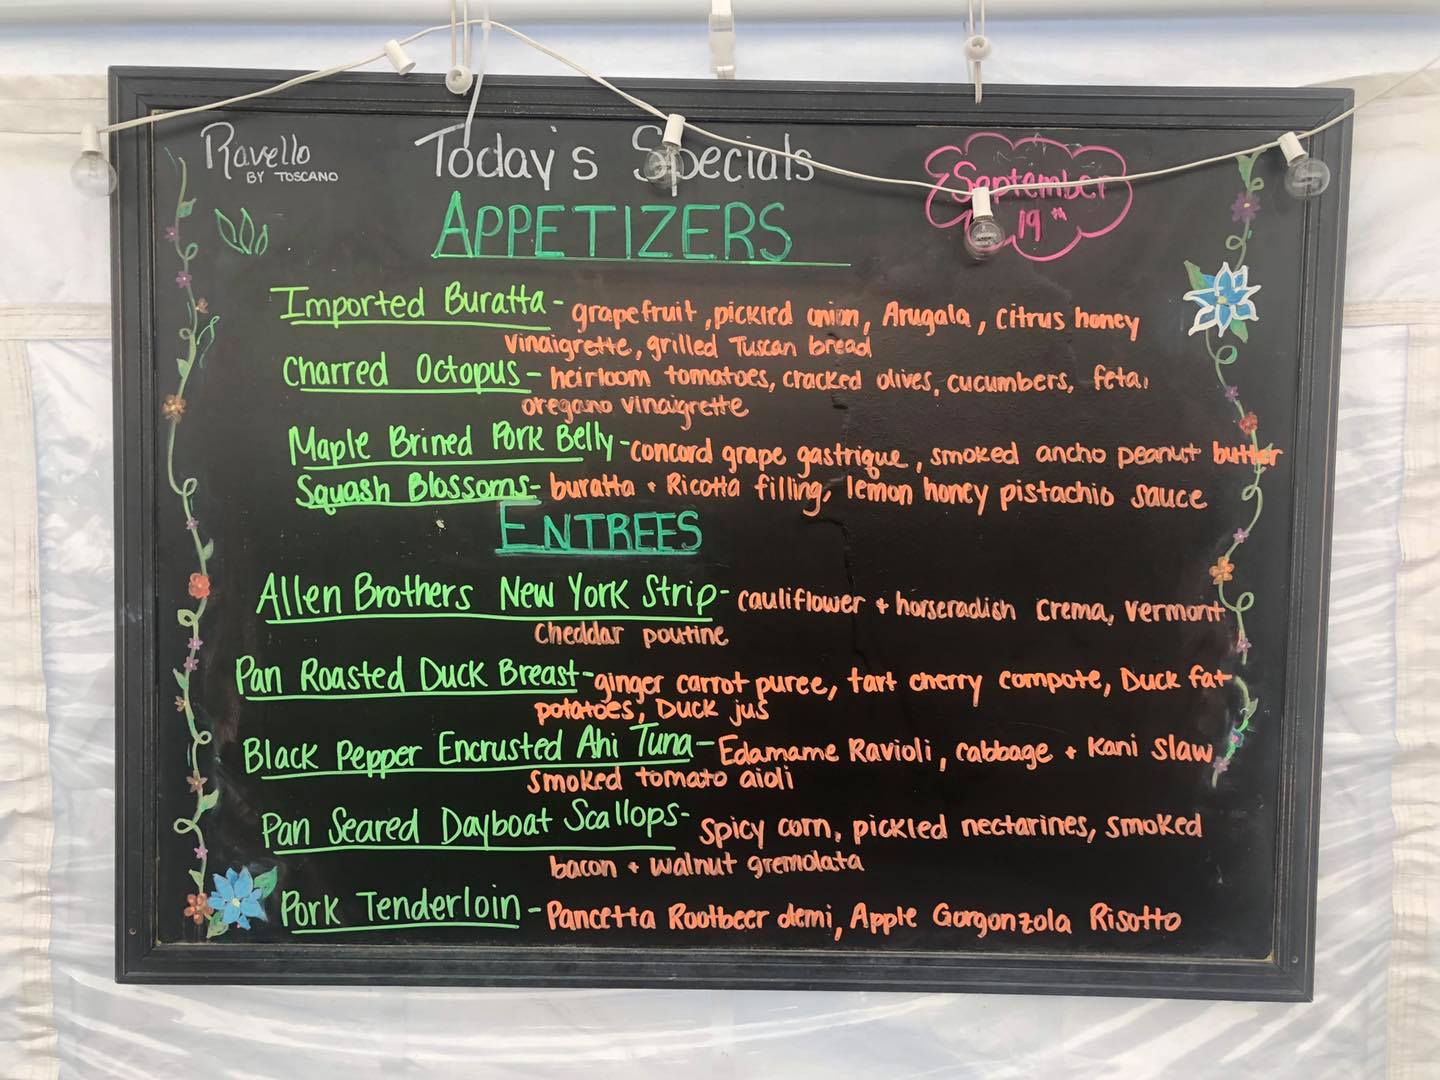 Ravello
BY TOSCANO
Today's Specials
September
19th
APPETIZERS
Imported Buratta - grapefruit, pickled onion, Arugala, citrus honey
vinaigrette, grilled Tuscan bread
Charred Octopus - heirloom tomatoes, cracked olives, cucumbers, feta,
oregano vinaigrette
Maple Brined Pork Belly - concord grape gastrique, smoked ancho peanut butter
Squash Blossoms - buratta + Ricotta filling, lemon honey pistachio sauce
ENTREES
Allen Brothers New York Strip - cauliflower + horseradish crema, Vermont
Cheddar poutine
Pan Roasted Duck Breast - ginger carrot puree, tart cherry compote, Duck fat
potatoes, Duck jus
Black Pepper Encrusted Ahi Tuna - Edamame Ravioli, cabbage + Kani Slaw,
smoked tomato aioli
Pan Seared Dayboat Scallops - Spicy corn, pickled nectarines, smoked
bacon + walnut gremolata
Pork Tenderloin - Pancetta Rootbeer demi, Apple Gorgonzola Risotto